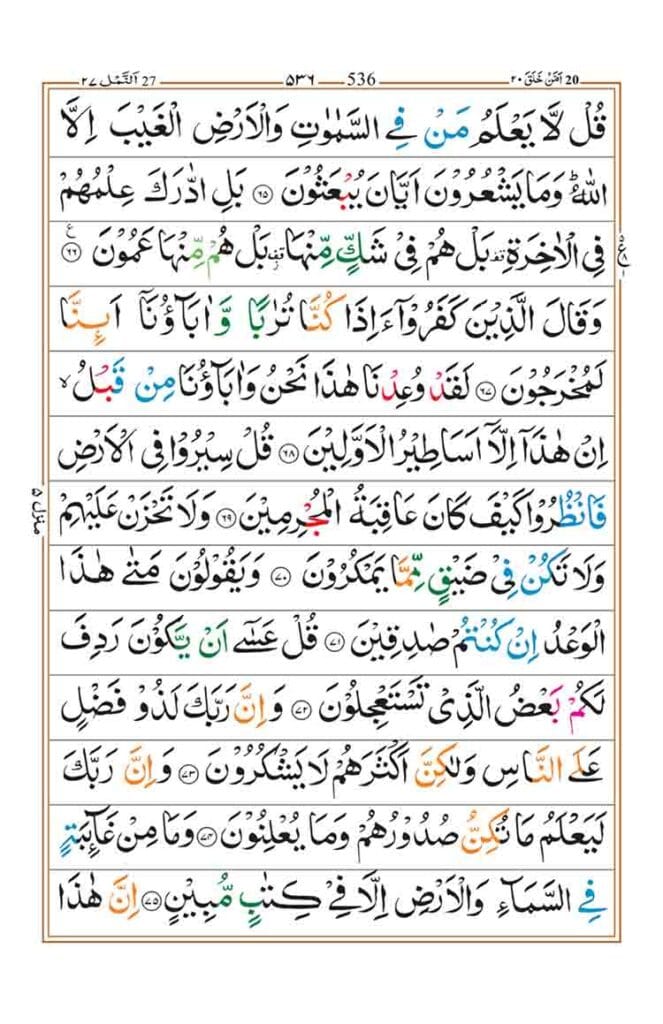 ٢٠ اَمَّنْ خَلَقَ 20 536 ٥٣٦ 27 اَلنَّمْل ٢٧
قُلْ لَّا يَعْلَمُ مَنْ فِي السَّمٰوٰتِ وَالْاَرْضِ الْغَيْبَ اِلَّا
اللّٰهُؕ وَمَا يَشْعُرُوْنَ اَيَّانَ يُبْعَثُوْنَ ۝۶۵ بَلِ ادّٰرَكَ عِلْمُهُمْ
فِي الْاٰخِرَةِ ࣞ بَلْ هُمْ فِيْ شَكٍّ مِّنْهَا ࣞ بَلْ هُمْ مِّنْهَا عَمُوْنَ ۝۶۶ ع
وَقَالَ الَّذِيْنَ كَفَرُوْٓا ءَاِذَا كُنَّا تُرٰبًا وَّاٰبَآؤُنَآ اَىِٕنَّا
لَمُخْرَجُوْنَ ۝۶۷ لَقَدْ وُعِدْنَا هٰذَا نَحْنُ وَاٰبَآؤُنَا مِنْ قَبْلُ ۙ
اِنْ هٰذَآ اِلَّآ اَسَاطِيْرُ الْاَوَّلِيْنَ ۝۶۸ قُلْ سِيْرُوْا فِي الْاَرْضِ
فَانْظُرُوْا كَيْفَ كَانَ عَاقِبَةُ الْمُجْرِمِيْنَ ۝۶۹ وَلَا تَحْزَنْ عَلَيْهِمْ
وَلَا تَكُنْ فِيْ ضَيْقٍ مِّمَّا يَمْكُرُوْنَ ۝۷۰ وَيَقُوْلُوْنَ مَتٰى هٰذَا
الْوَعْدُ اِنْ كُنْتُمْ صٰدِقِيْنَ ۝۷۱ قُلْ عَسٰٓى اَنْ يَّكُوْنَ رَدِفَ
لَكُمْ بَعْضُ الَّذِيْ تَسْتَعْجِلُوْنَ ۝۷۲ وَاِنَّ رَبَّكَ لَذُوْ فَضْلٍ
عَلَى النَّاسِ وَلٰكِنَّ اَكْثَرَهُمْ لَا يَشْكُرُوْنَ ۝۷۳ وَاِنَّ رَبَّكَ
لَيَعْلَمُ مَا تُكِنُّ صُدُوْرُهُمْ وَمَا يُعْلِنُوْنَ ۝۷۴ وَمَا مِنْ غَآىِٕبَةٍ
فِي السَّمَآءِ وَالْاَرْضِ اِلَّا فِيْ كِتٰبٍ مُّبِيْنٍ ۝۷۵ اِنَّ هٰذَا
منزل ۵